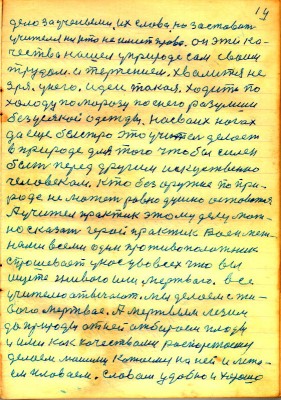 19
дело за учеными. их слова, но заставить
учителя ни кто не имеет право. он эти ка-
чества нашел у природе сам своим
трудом. и терпением. хвалится не
зря. у него. идеи такая. ходить по
холоду по морозу по снегу разумии
без усякой одежды, на своих ногах
да еще быстро это учитель делает
в природе для того чтобы силен
быть перед другим искуственно
человеком. кто без оружие по при-
роде не может равно душно остоятся
А учителя практик этому делу мож-
но сказать герой практик Воен мет-
нами всеми один противоположник
спрашевает у нас у во всех что вы
ищете живого или мертвого. все
учителю отвечают. мы делаем с жи-
вого мертвае. А мертвым лезим
до природы от ней отбираем плоды
и ими как качествами распоряжаем
делаем машину катаимся на ней и лета-
ем плаваем. словам удобно и хорошо